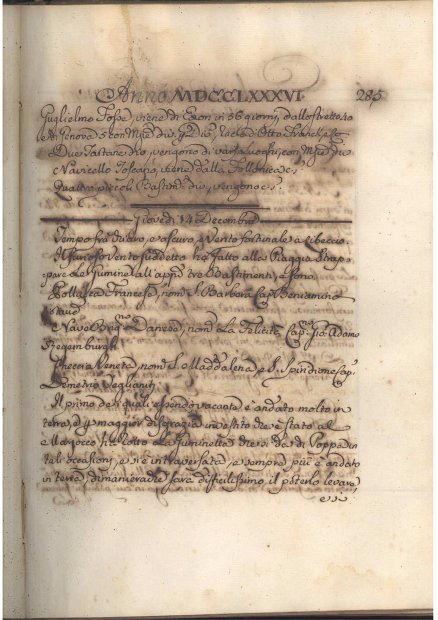 Anno MDCCLXXXVI. 285
Guglielmo viene di in 56 giorni, dallo stretto 40
e da Genova 5 con div.
Due Tartane d.o, vengono di con div.
Navicello Toscano, viene dalla Follonica
Quattro piccoli Bastim. div. vengono
Giovedì 14 Decembre
Tempo frà chiaro, e oscuro, e Vento fortunale a Libeccio.
Il furioso Vento suddetto ha fatto alla Piaggia Strap-
pare Le Gumine all' tre Bastimenti, e sono
Pollacca Francese, nom. S. Barbara Cap. Beniamino
Nave Danese, nom. La Felicità Cap. Gio. Adamo
Veneta, nom. S. Maddalena e S. Spiridione Cap.
Demetrio
Il primo de' quali essendo vacante è andato molto in
terra, e p maggior disgrazia investito che è stato al
Marocco ha rotto La Guminetta che si dà di Poppa in
tali occasioni, e si è intraversata, e sempre più è andato
in terra, di maniera che sarà difficilissimo, il poterlo levare,
e si